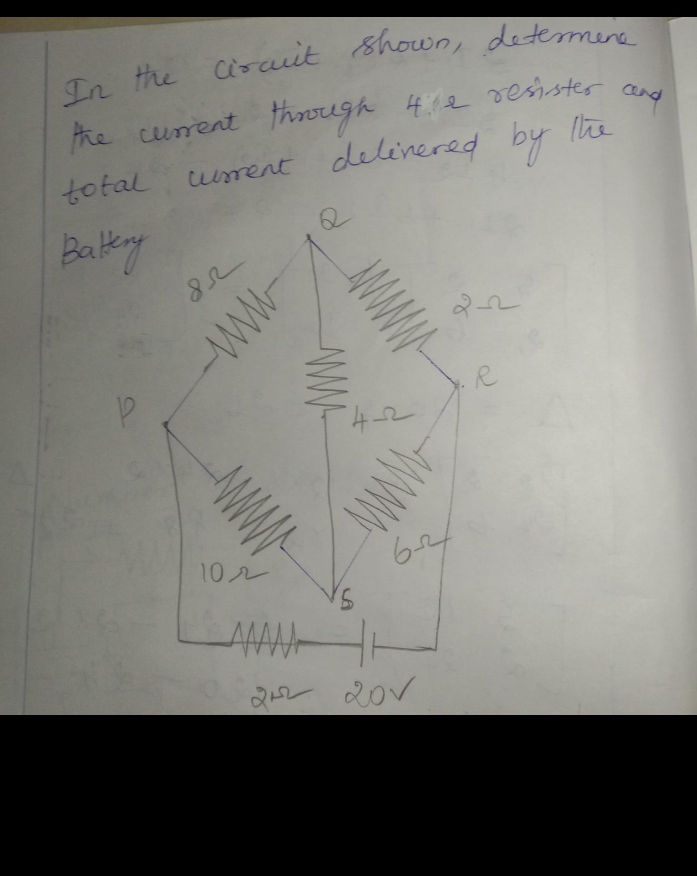 In the circuit shown, determine
the current through 4 Ω resister and
total current delivered by the
Battery
Q
8Ω
2Ω
P
R
4Ω
10Ω
6Ω
S
2Ω 20V